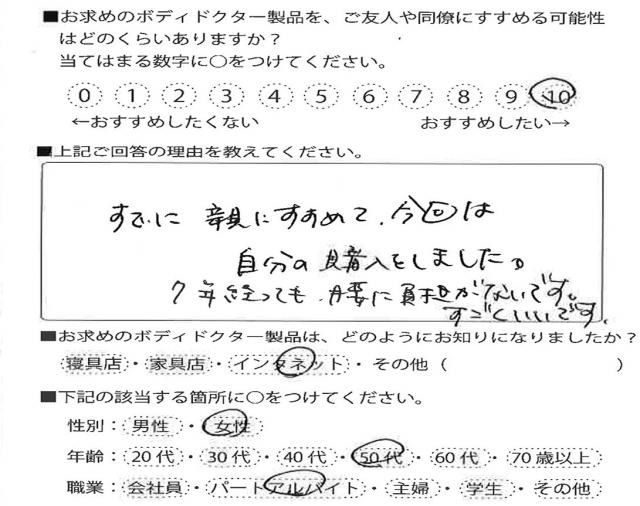 ■お求めのボディドクター製品を、ご友人や同僚にすすめる可能性
はどのくらいありますか？
当てはまる数字に○をつけてください。
0 1 2 3 4 5 6 7 8 9 10
←おすすめしたくない おすすめしたい→
■上記ご回答の理由を教えてください。
すでに 親にすすめて、今回は
自分の購入をしました。
7年経っても、腰に負担がないです。
すごくいいです。
■お求めのボディドクター製品は、どのようにお知りになりましたか？
寝具店・家具店・インタネット・その他（ ）
■下記の該当する箇所に○をつけてください。
性別：男性・女性
年齢：20代・30代・40代・50代・60代・70歳以上
職業：会社員・パートアルバイト・主婦・学生・その他